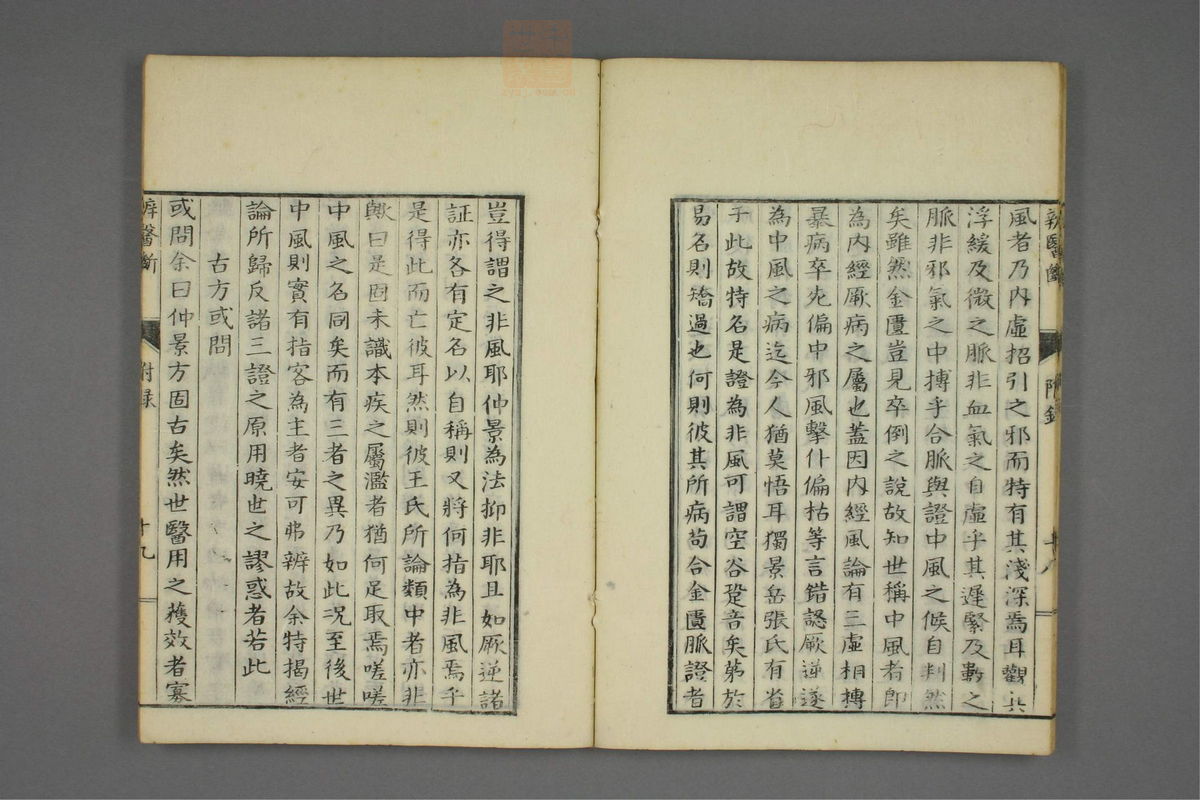 風者乃內虛招引之邪而特有其淺深焉耳觀其
浮緩及微之脈非血氣之自虛乎其遲緊及數之
脈非邪氣之中搏乎合脈與證中風之候自判然
矣雖然金匱豈見卒倒之說故知世稱中風者即
為內經厥病之屬也蓋因內經風論有三虛相搏
暴病卒死偏中邪風擊仆偏枯等言錯認厥逆遂
為中風之病迄今人猶莫悟耳獨景岳張氏有省
于此故特名是證為非風可謂空谷跫音矣第於
易名則矯過也何則彼其所病苟合金匱脈證者
豈得謂之非風耶仲景為法抑非耶且如厥逆諸
証亦各有定名以自稱則又將何指為非風焉乎
是得此而亡彼耳然則彼王氏所論類中者亦非
歟曰是固未識本疾之屬濫者猶何足取焉嗟嗟
中風之名同矣而有三者之異乃如此况至後世
中風則實有指客為主者安可弗辨故余特揭經
論所歸反諸三證之原用曉世之謬惑者若此
古方或問
或問余曰仲景方固古矣然世醫用之獲效者寡
辨醫斷
附錄
十九